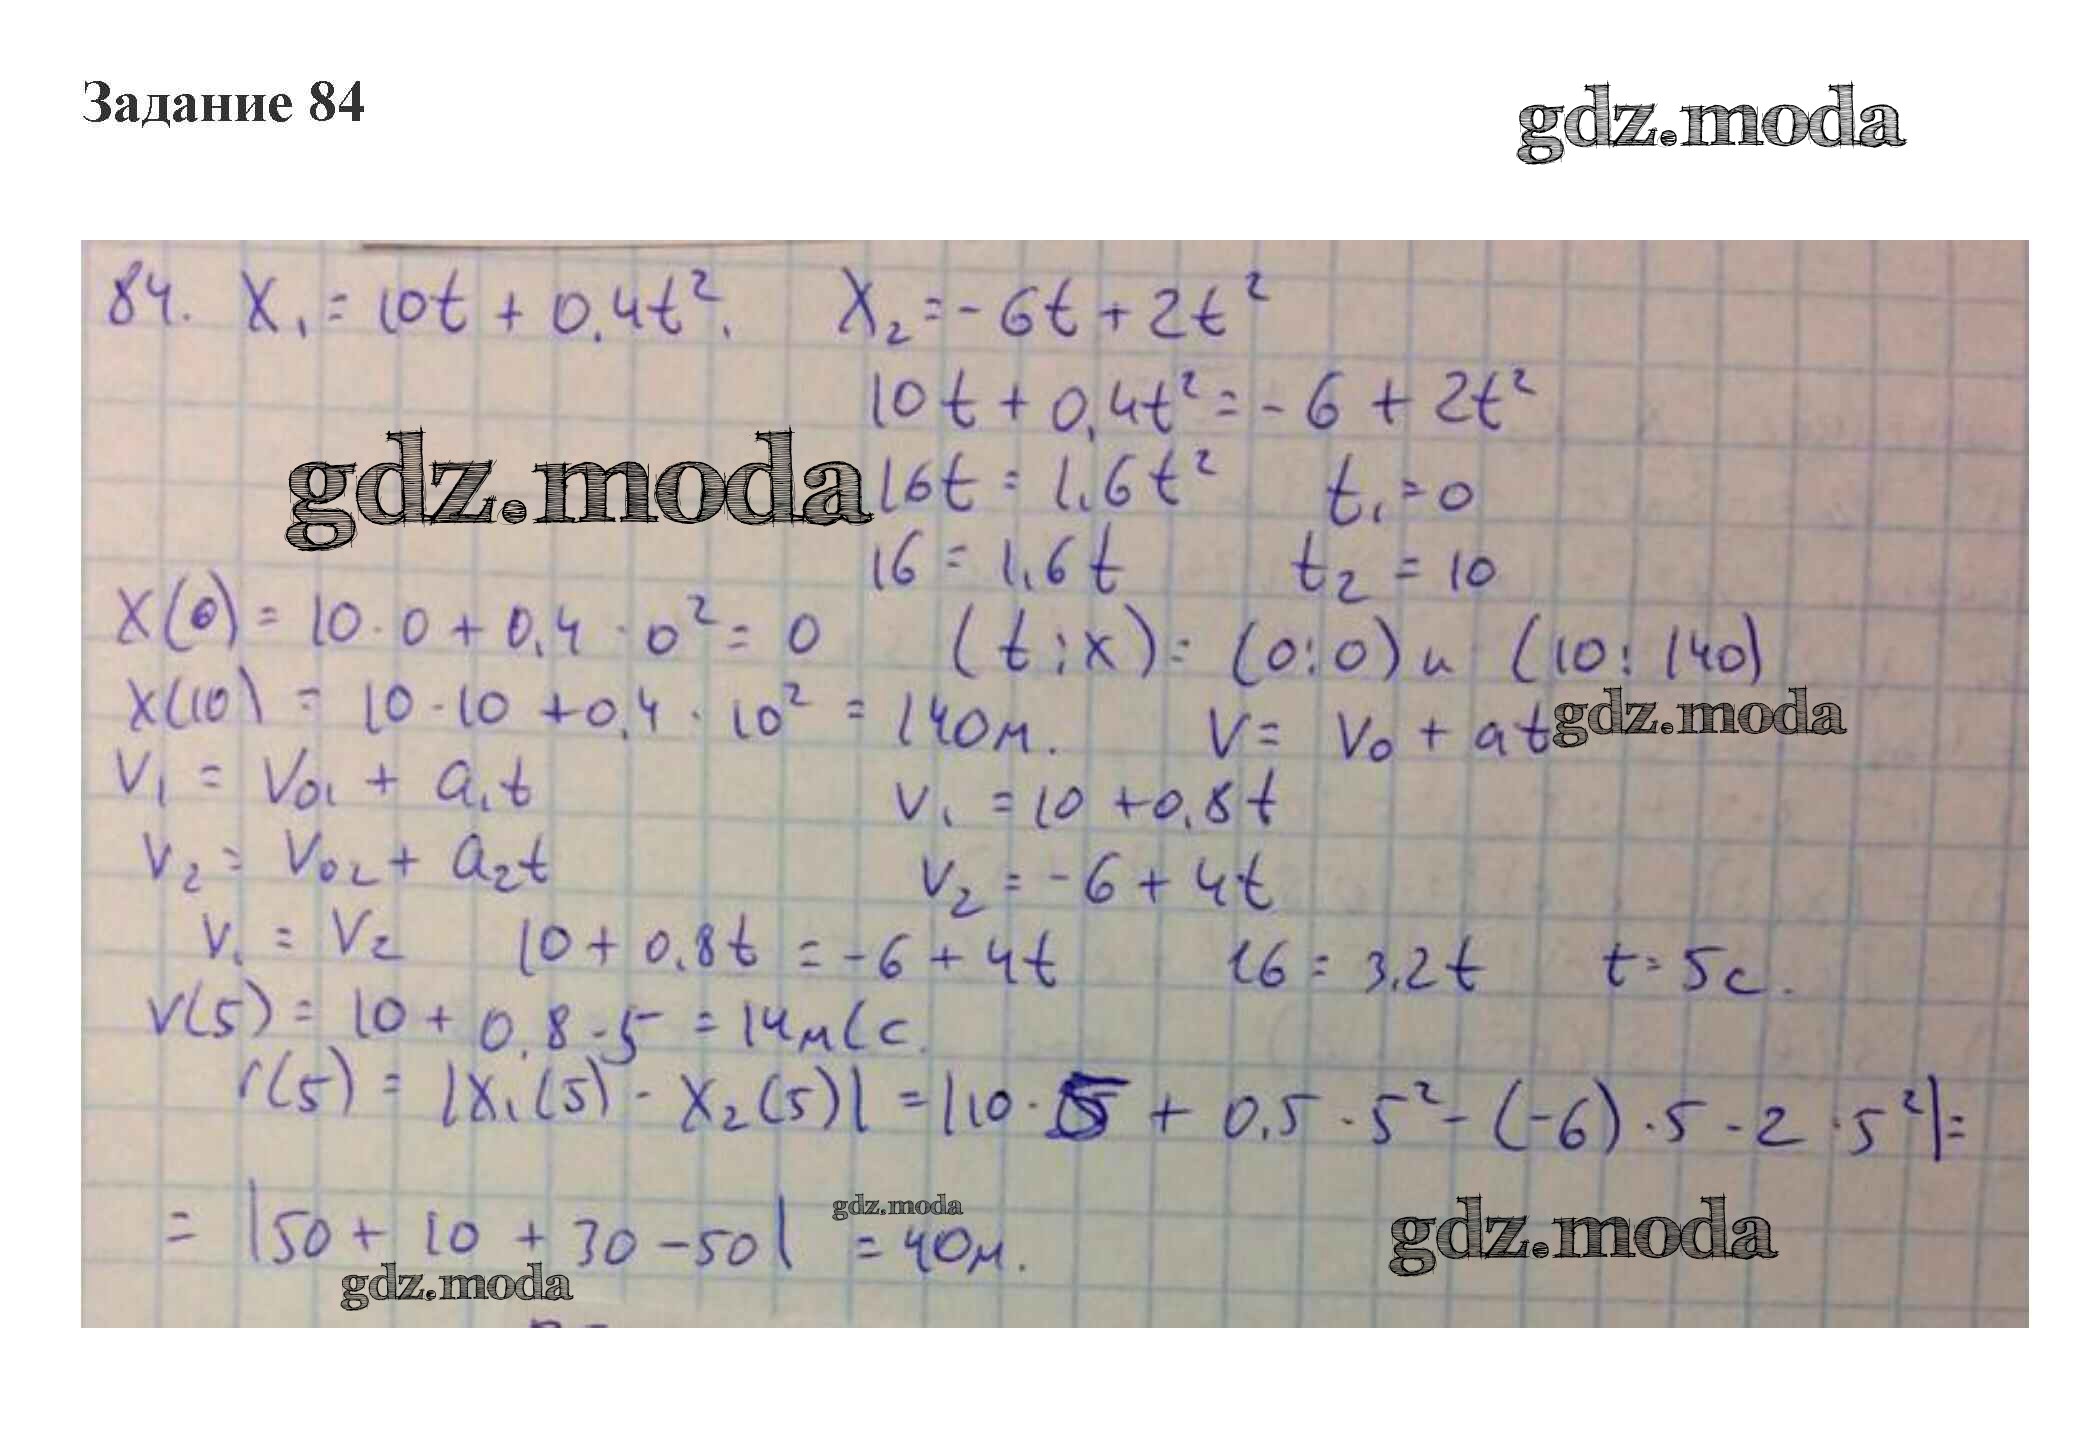 Задание 84
gdz.moda
84. X₁ = 10t + 0,4t². X₂ = -6t + 2t²
10t + 0,4t² = -6 + 2t²
gdz.moda
16t = 1,6t² t₁ = 0
16 = 1,6t t₂ = 10
X(0) = 10·0 + 0,4·0² = 0 (t;x) = (0;0) и (10;140)
X(10) = 10·10 + 0,4·10² = 140м. V = V₀ + at
gdz.moda
V₁ = V₀₁ + a₁t V₁ = 10 + 0,8t
V₂ = V₀₂ + a₂t V₂ = -6 + 4t
V₁ = V₂ 10 + 0,8t = -6 + 4t 16 = 3,2t t = 5c.
V(5) = 10 + 0,8·5 = 14м/с.
r(5) = |X₁(5) - X₂(5)| = |10·5 + 0,5·5² - (-6)·5 - 2·5²| =
= |50 + 10 + 30 - 50| = 40м.
gdz.moda
gdz.moda
gdz.moda